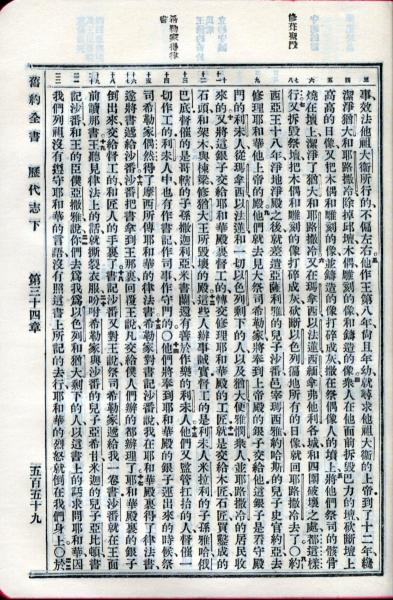 修葺聖殿
事效法他祖大衛所行的不偏左右他作王第八年尚且年幼就尋求他祖大衛的上帝到了十二年纔
潔淨猶大和耶路撒冷除掉邱壇木偶雕刻的像和鑄造的像衆人在他面前拆毀巴力的壇砍斷壇上
高高的日像又把木偶和雕刻的像並鑄造的像打碎成灰撒在祭偶像人的墳上將他們祭司的骸骨
燒在壇上潔淨了猶大和耶路撒冷又在瑪拿西以法蓮西緬拿弗他利各城和四圍破壞之處都這樣
行又拆毀祭壇把木偶和雕刻的像打碎成灰砍斷以色列徧地所有的日像就回耶路撒冷去了○約
西亞王十八年淨地淨殿之後就差遣亞薩利雅的兒子沙番邑宰瑪西雅約哈斯的兒子史官約亞去
修理耶和華他上帝的殿他們就去見大祭司希勒家將奉到上帝殿的銀子交給他這銀子是看守殿
門的利未人從瑪拿西以法蓮和一切以色列剩下的人以及猶大便雅憫衆人並耶路撒冷的居民收
來的又將這銀子交給耶和華殿裏督工的轉交修理耶和華殿的工匠就是交給木匠石匠買鑿成的
石頭和架木與棟樑修猶大王所毀壞的殿這些人辦事誠實督工的是利未人米拉利的子孫雅哈俄
巴底督催的是哥轄的子孫撒迦利亞米書蘭還有善於作樂的利未人他們又監管扛抬的人督催一
切作工的利未人中也有作書記作司事作守門的○他們將奉到耶和華殿的銀子運出來的時候祭
司希勒家偶然得了摩西所傳耶和華的律法書希勒家對書記沙番說我在耶和華殿裏得了律法書
遂將書遞給沙番沙番把書拿到王那裏回覆王說凡交給僕人們辦的都辦理了耶和華殿裏的銀子
倒出來交給督工的和匠人的手裏書記沙番又對王說祭司希勒家遞給我一卷書沙番就在王面
前讀那書王聽見律法上的話就撕裂衣服吩咐希勒家與沙番的兒子亞希甘米迦的兒子亞比頓書
記沙番和王的臣僕亞撒雅說你們去爲我爲以色列和猶大剩下的人以這書上的話求問耶和華因
我們列祖沒有遵守耶和華的言語沒有照這書上所記的去行耶和華的烈怒就倒在我們身上○於
舊約全書 歷代志下 第三十四章 五百五十九